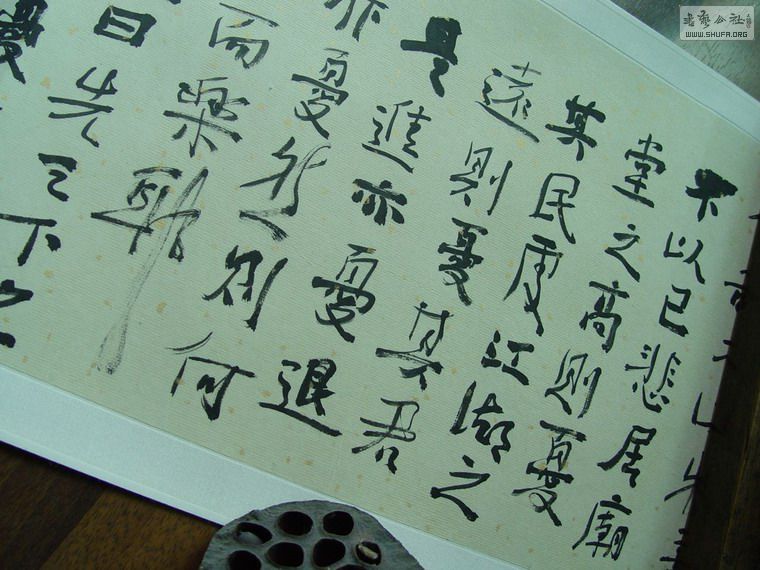 不以己悲居廟
堂之高則憂
其民處江湖之
遠則憂其君
是進亦憂退
亦憂然則何
而樂耶
曰先天下之
憂
書藝公社
WWW.SHUFA.ORG